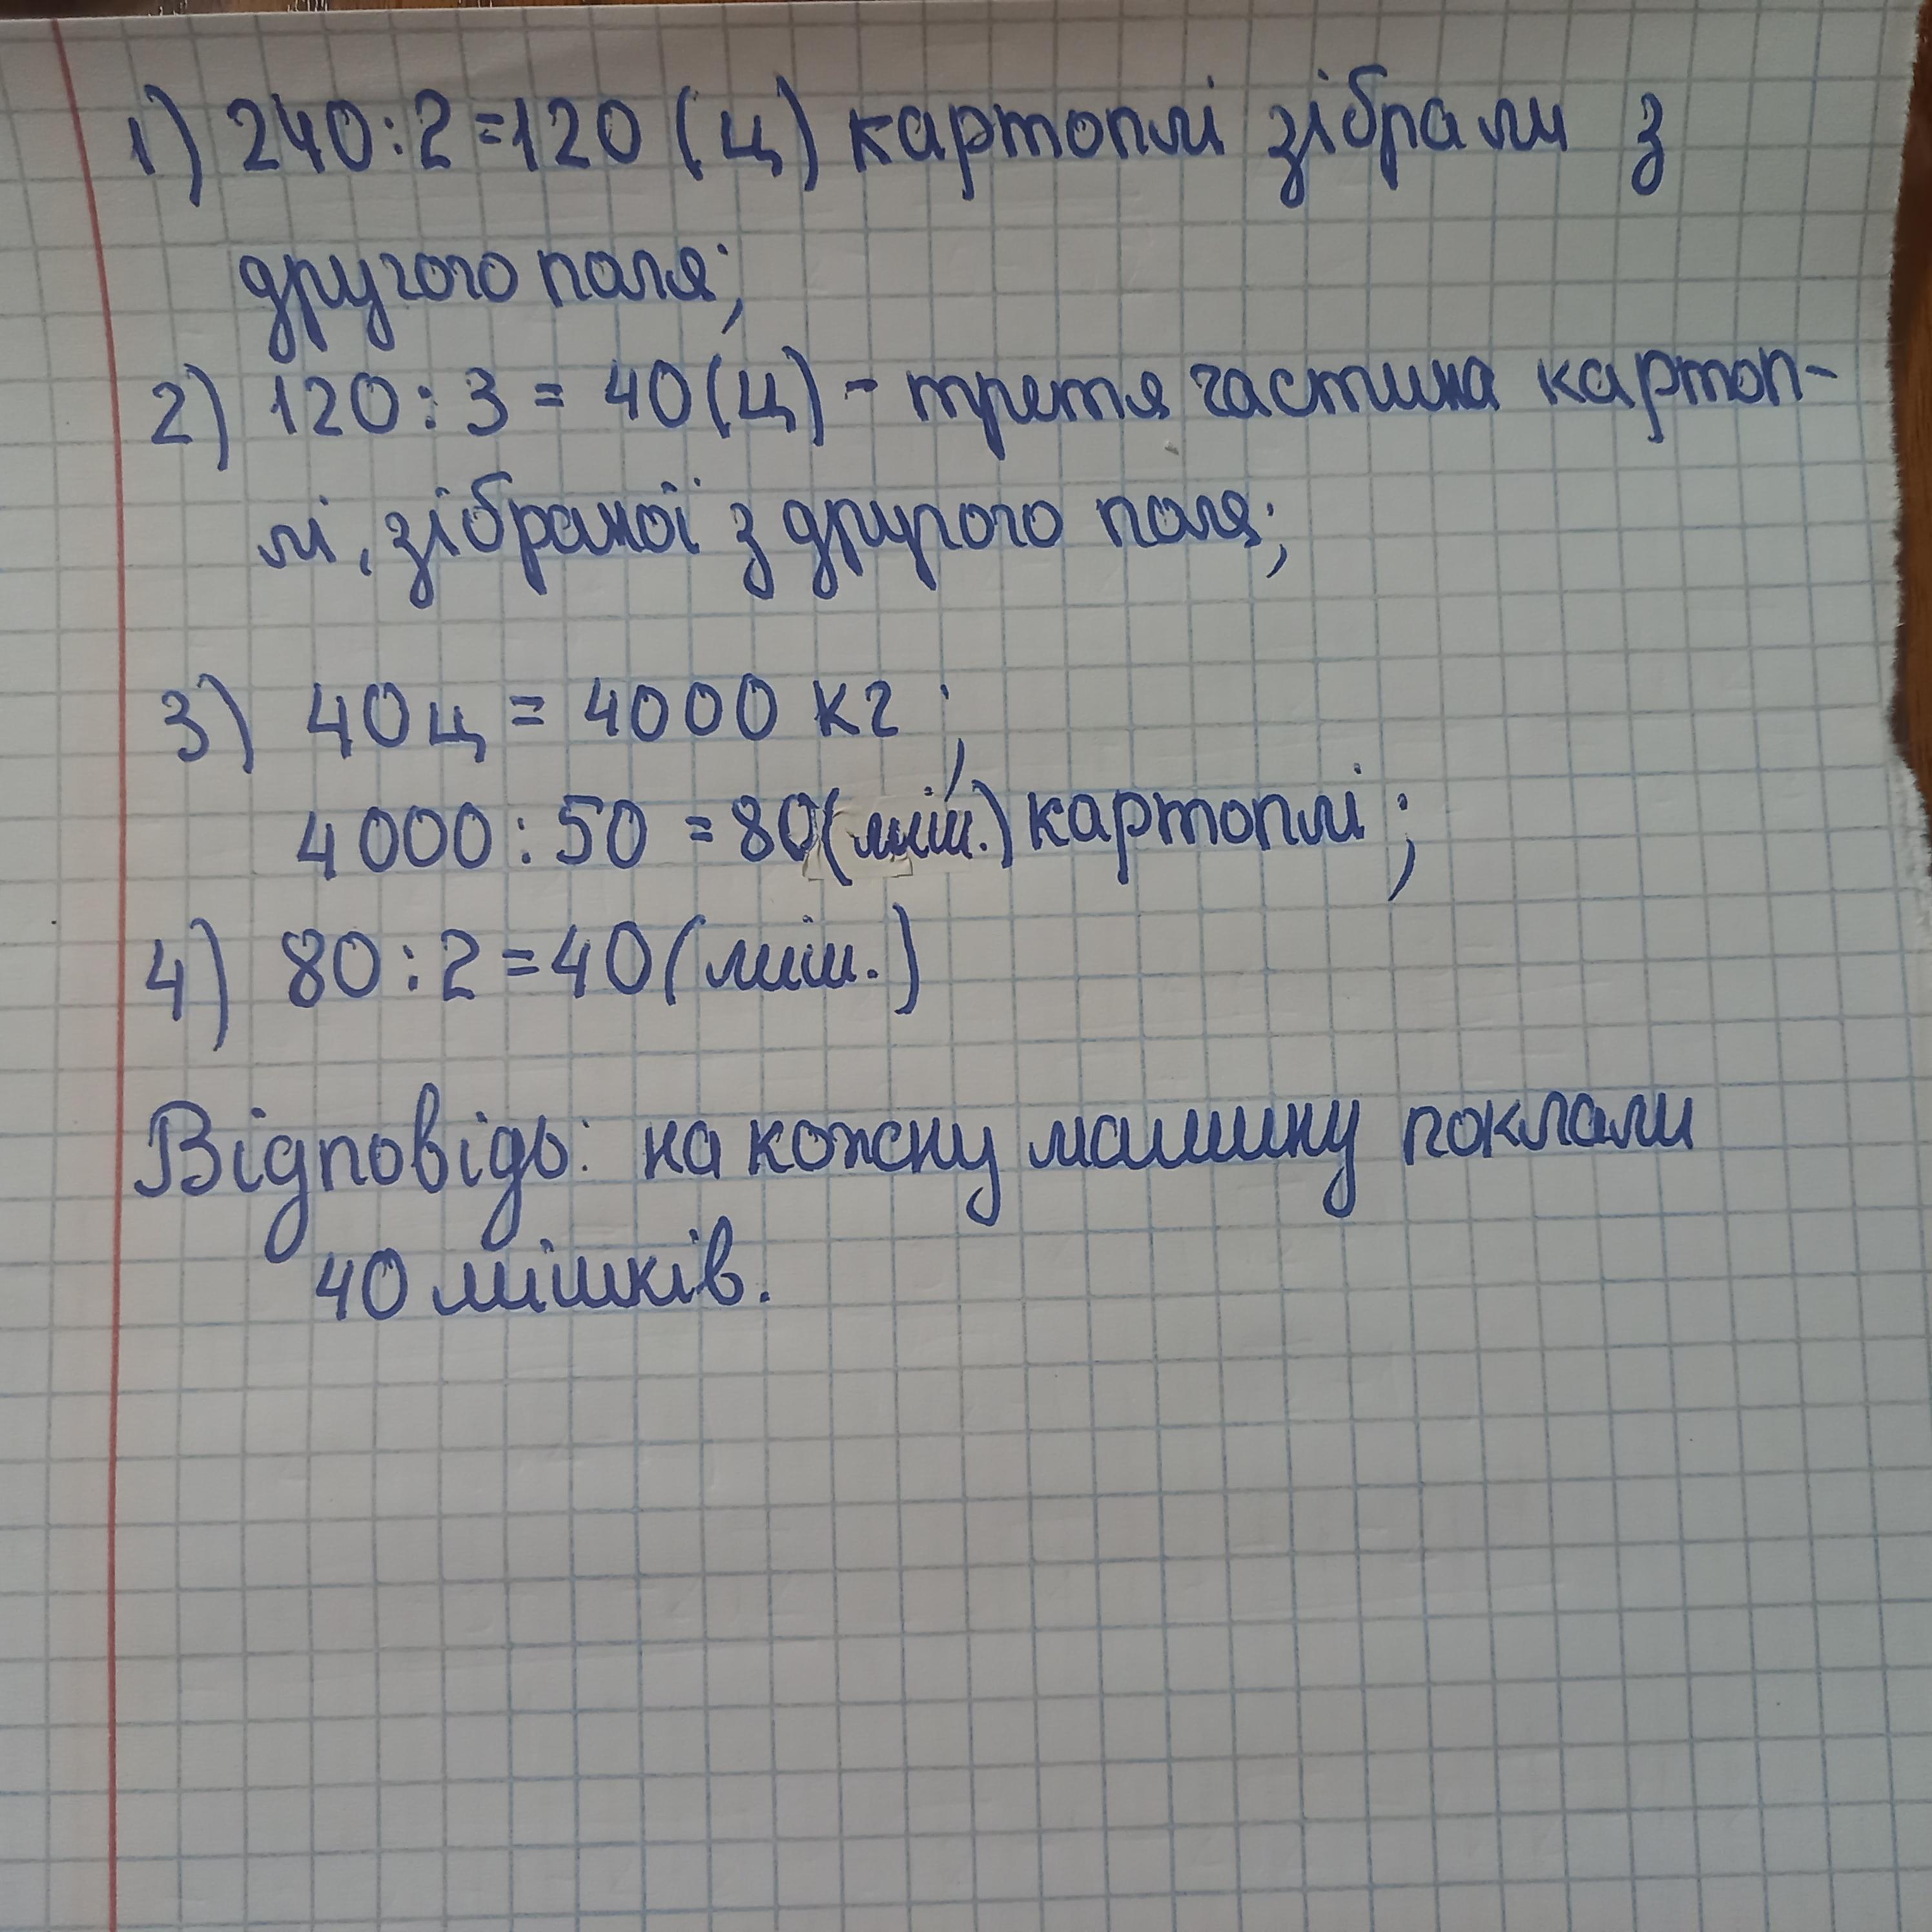 1) 240:2=120 (ц) картоплі зібрали з
другого поля;
2) 120:3=40(ц) - третя частина картоп-
лі, зібраної з другого поля;
3) 40ц = 4000 кг;
4000:50 =80(міш.) картоплі;
4) 80:2=40(міш.)
Відповідь: на кожну машину поклали
40 мішків.